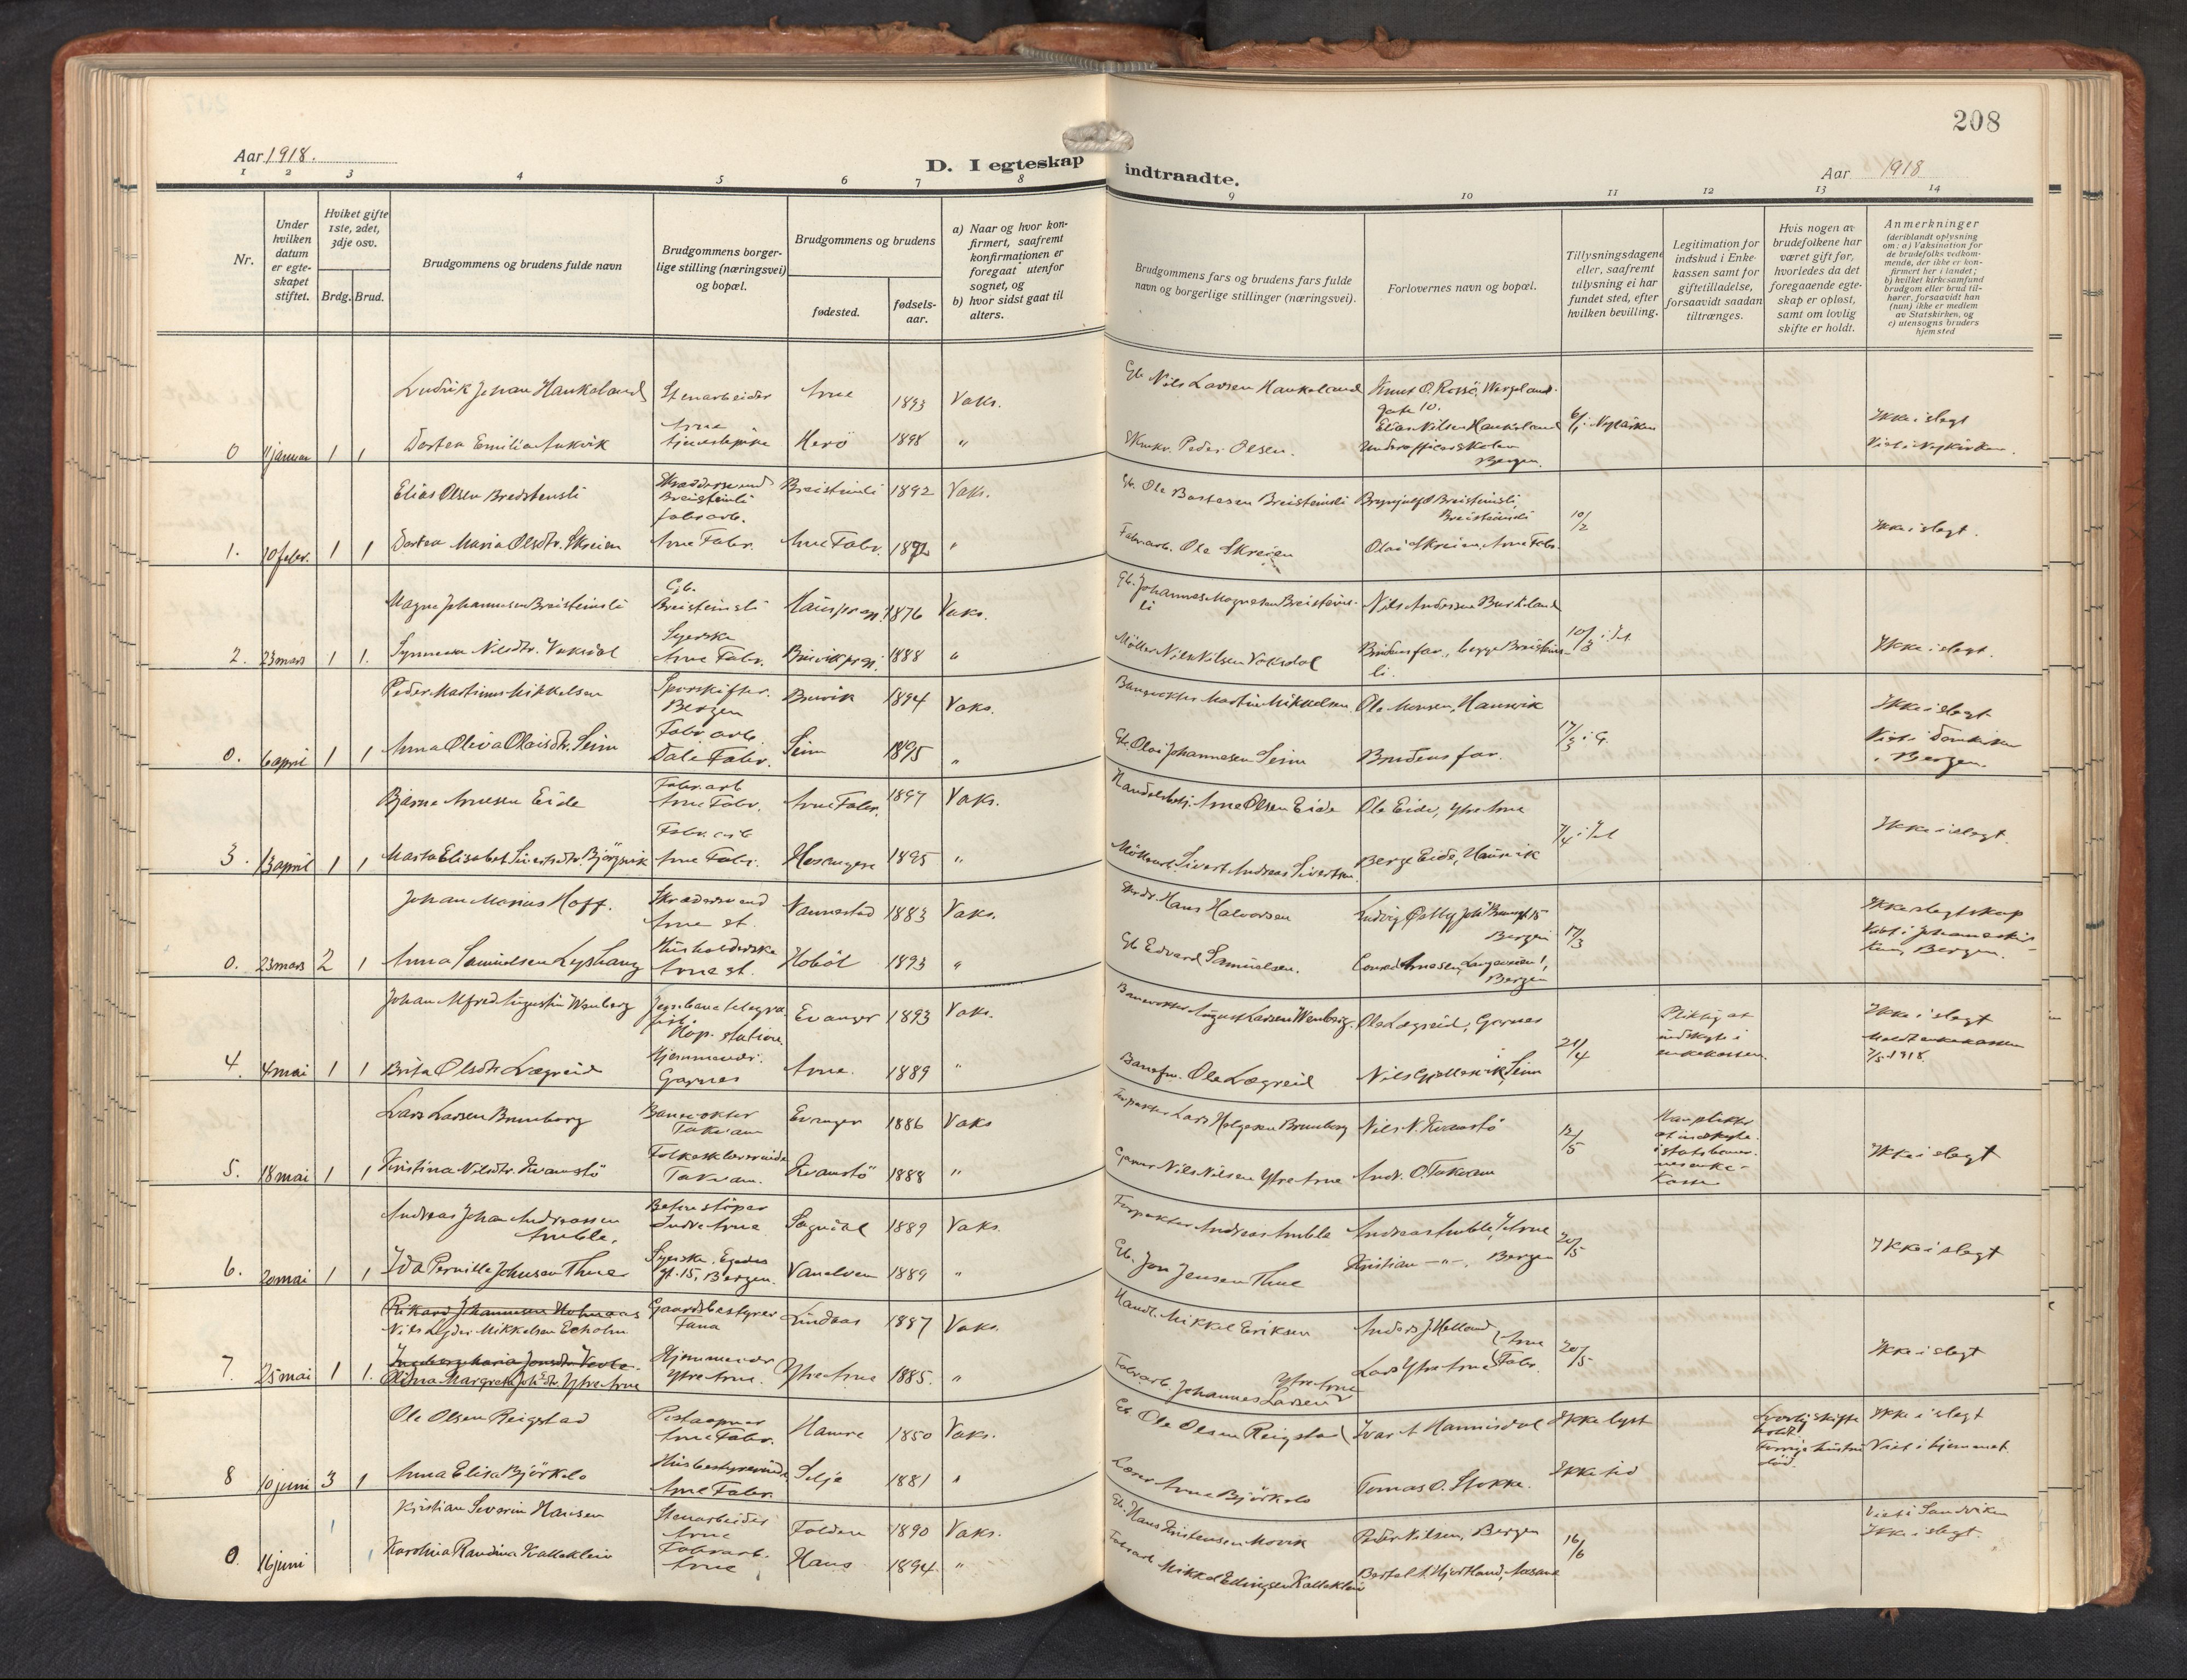 208
Aar 1918.
D. I egteskap
indtraadte.
Aar 1918
1 2 3 4 5 6 7 8
9 10 11 12 13 14
Nr.
Under hvilken datum er egteskapet stiftet.
Hviket gifte 1ste, 2det, 3dje osv.
Brdg. Brud.
Brudgommens og brudens fulde navn
Brudgommens borgerlige stilling (næringsvei) og bopæl.
Brudgommens og brudens
fødested.
fødselsaar.
a) Naar og hvor konfirmert, saafremt konfirmationen er foregaat utenfor sognet, og
b) hvor sidst gaat til alters.
Brudgommens fars og brudens fars fulde navn og borgerlige stillinger (næringsvei).
Forlovernes navn og bopæl.
Tillysningsdagene eller, saafremt tillysning ei har fundet sted, efter hvilken bevilling.
Legitimation for indskud i Enkekassen samt for giftetilladelse, forsaavidt saadan tiltrænges.
Hvis nogen av brudefolkene har været gift før, hvorledes da det foregaaende egteskap er opløst, samt om lovlig skifte er holdt.
Anmerkninger
(deriblandt oplysning om: a) Vaksination for de brudefolks vedkommende, der ikke er konfirmert her i landet;
b) hvilket kirkesamfund brudgom eller brud tilhører, forsaavidt han (hun) ikke er medlem av Statskirken, og
c) utensogns bruders hjemsted
Ludvik Johan Haukeland Stenarbeider Arne 1893 Vaks. Gb. Nils Larsen Haukeland Knut O. Rossö, Wergelandsgate 10.
0 11 januar 1 1 Dortea Emilie Aukvik Arne tjenestepike Herö 1898 " Peder Olsen. Elias Nilsen Haukeland Underofficerskolen Bergen. 6/1 i Nykirken Ikke i slegt Viet i Nykirken.
Elias Olsen Breistensli Skreddersvend Breisteinli Breisteinli 1892 Vaks. Gb. Ole Bastesen Breisteinsli Brynjulf O Breisteinsli, Breisteinsli 10/2
1. 10 febr. 1 1 Dortea Maria Olsdtr. Skreien fabrarb. Arne Fabr. Arne Fabr. 1892 " Fabrarb. Ole Skreien Olai Skreien, Arne Fabr. Ikke i slegt.
Magne Johannesen Breisteinsli Gb. Breisteinsli 1876 Vaks. Gb. Johannes Magnesen Breisteinsli Nils Andersen Burkeland
2. 23 mars 1 1. Synneva Nilsdtr. Vaksdal Syerske Arne Fabr. 1888 " Möller Nils Nilsen Vaksdal Brudens far, begge Breisteinsli. 10/3 Ikke i slegt.
Peder Martinus Mikkelsen Sporskifter. Bergen Bruvik 1894 Vaks. Banevokter Martin Mikkelsen. Ole Monsen, Haukvik
0. 6 april 1 1 Anna Oliva Olaisdtr. Seim Fabr. arb. Dale Fabr. Seim 1895 " Gb. Olai Johannesen Seim Brudens far. 17/3 i G. Ikke i slegt Viet i Domkirken i Bergen.
Bjarne Arnesen Eide Fabr. arb Arne Fabr. Arne Fabr. 1897 Vaks. Handelsbetj. Arne Olsen Eide Ole Eide, Ytre Arne
3. 13 april 1 1 Marta Elisabet Sivertsdtr. Björgvik Fabr. arb Arne Fabr. Hosanger 1895 " Sivert Andreas Sivertsen. Berge Eide, Haukvik 7/4 Ikke i slegt.
Johan Marius Hoff. Skreddersvend Arne st. Vannestad 1883 Vaks. Hans Halvorsen Ludvig Østby Bergen
0. 23 mars 2 1 Anna Samuelsen Husholderske Arne st. Hobøl 1893 " Gb Edvard Samuelsen. Conrad Arnesen, Bergen 17/3 Ikke slegtskap Viet i Johanneskirken, Bergen.
Johan Alfred Augustin Wenberg Jernbanetelegrafist. Hop. station. Evanger 1893 Vaks. Banevokter August Larsen Wenberg. Ole Lægreid, Garnes
4. 4 mai 1 1 Brita Olsdtr Lægreid Hjemmevær. Garnes Arne. 1889 " Banefm. Ole Lægreid Nils Gjellesvik, Seim 21/4 Pliktig at indskyte i enkekassen. Ikke i slegt Meldt enkekassen 7/5 1918.
Lars Larsen Brunborg Banevokter Takvam Evanger 1886 Vaks Forpakter Lars Holgersen Brunborg Nils N. Kvamstö
5. 18 mai 1 1 Kristina Nilsdtr. Kvamstö Folkeskolelærerinde Takvam. Kvamstö 1888 " Nils Nilsen Ytre Arne Andr. O. Takvam 12/5 Ikke i slegt
Andreas Johan Andreassen Amble. Betenstöper Indre Arne Sogndal 1889 Vaks. Forpakter Andreas Amble Andreas Amble, Arne
6. 20 mai 1 1 Ida Pernille Johnsen Thue Syerske. gt. 15, Bergen. Vanelven 1889 " Gb. Jon Jensen Thue Kristian -"-, Bergen 20/5 Ikke i slegt
Rikard Johannesen Holmaas
Nils Lyder Mikkelsen Echolm Gaardsbestyrer Fana Lindaas 1887 Vaks. Handl. Mikkel Eriksen Anders J. Helland
7. 25 mai 1 1. Olina Margreta Joh's dtr. Ytre Arne Hjemmevær Ytre Arne. Ytre Arne 1885. " Fabrarb. Johannes Larsen Ytre Arne Lars Ytre Arne Arne Fabr. 20/5 Ikke i slegt
Ole Olsen Reigstad Postaapner Arne Fabr. Hamre 1850 Vaks. Gb. Ole Olsen Reigstad Ivar A Hannisdal Ikke lyst Lovlig skifte holdt. Ikke i slegt
8 10 juni 3 1 Anna Elisa Björkelo Husbestyrerinde Arne Fabr. Selje 1881 " Lærer Arne Björkelo Tomas O. Stokke. Ikke tid Forrige hustru död. Viet i hjemmet.
Kristian Severin Hansen Stenarbeider Arne Folden 1890 Vaks. Gb. Hans Kristensen Movik Peder Nilsen, Bergen Viet i Sandviken
0. 16 juni 1 1 Karolina Randina Kalleklein Fabrarb. Arne Haus 1894. " Fabrarb Mikkel Ellingsen Kalleklein Bertel A. Hjortland, Aasane 16/6 Ikke i slegt.